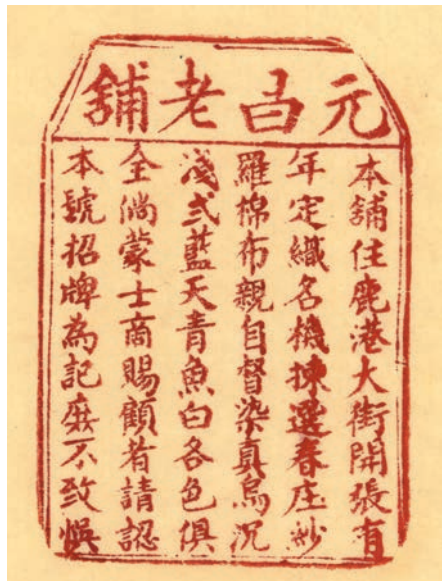 元昌老舖
本舖住鹿港大街開張有
年定織名機揀選春庄紗
羅棉布親自督染真烏沉
淺弍藍天青魚白各色俱
全倘蒙士商賜顧者請認
本號招牌為記庶不致悞